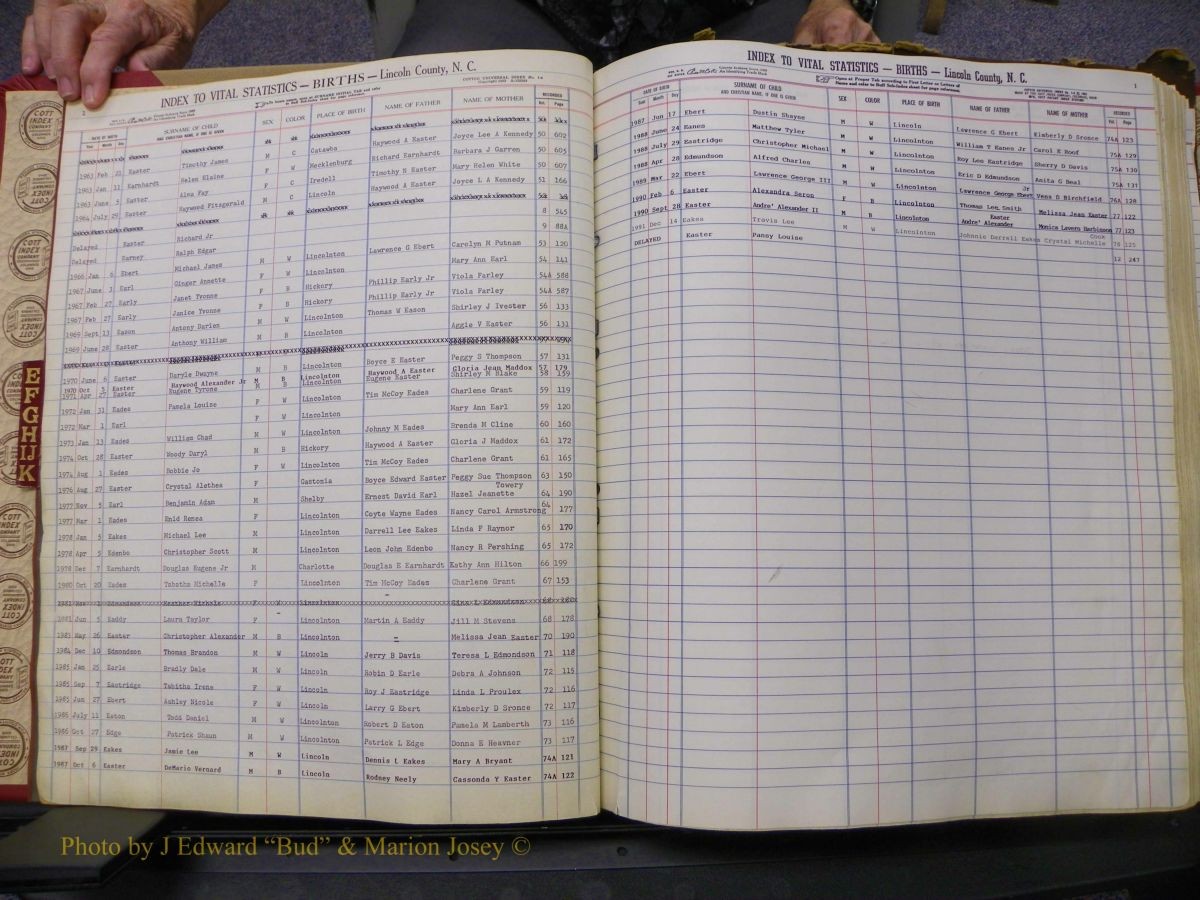 INDEX TO VITAL STATISTICS — BIRTHS — Lincoln County, N. C.
COTT INDEX COMPANY COLUMBUS, OHIO
DATE OF BIRTH SURNAME OF CHILD SEX COLOR PLACE OF BIRTH NAME OF FATHER NAME OF MOTHER RECORDED
Year Month Day AND CHRISTIAN NAME, IF ONE IS GIVEN Vol. Page
1963 Feb 21 Easter Timothy James M C Catawba Haywood A Easter Joyce Lee A Kennedy 50 602
1963 Jan 11 Earnhardt Helen Elaine F W Mecklenburg Richard Earnhardt Barbara J Garren 50 605
1963 June 5 Easter Alma Fay F C Iredell Timothy N Easter Mary Helen White 50 607
1964 July 29 Easter Haywood Fitzgerald M C Lincoln Haywood A Easter Joyce L A Kennedy 51 166
Delayed Easter Richard Jr 8 545
Delayed Earney Ralph Edgar 9 88A
1966 Jan 6 Ebert Michael James M W Lincolnton Lawrence G Ebert Carolyn M Putnam 53 120
1967 June 3 Earl Ginger Annette F W Lincolnton Mary Ann Earl 54 141
1967 Feb 27 Early Janet Yvonne F B Hickory Phillip Early Jr Viola Farley 54A 588
1967 Feb 27 Early Janice Yvonne F B Hickory Phillip Early Jr Viola Farley 54A 587
1969 Sept 13 Eason Antony Darlen M W Lincolnton Thomas W Eason Shirley J Ivester 56 133
1969 June 28 Easter Anthony William M B Lincolnton Aggie V Easter 56 131
1970 June 6 Easter Daryle Dwayne M B Lincolnton Boyce E Easter Peggy S Thompson 57 131
1970 Oct 5 Easter Haywood Alexander Jr M B Lincolnton Haywood A Easter Gloria Jean Maddox 57 179
1971 Apr 27 Easter Eugene Tyrone M B Lincolnton Eugene Easter Shirley M Blake 58 159
1972 Jan 31 Eades Pamela Louise F W Lincolnton Tim McCoy Eades Charlene Grant 59 119
1972 Mar 1 Earl F W Lincolnton Mary Ann Earl 59 120
1973 Jan 13 Eades William Chad M W Lincolnton Johnny M Eades Brenda M Cline 60 160
1974 Oct 28 Easter Woody Daryl M B Hickory Haywood A Easter Gloria J Maddox 61 172
1974 Aug 1 Eades Bobbie Jo F W Lincolnton Tim McCoy Eades Charlene Grant 61 165
1976 Aug 27 Easter Crystal Alethea F Gastonia Boyce Edward Easter Peggy Sue Thompson 63 150
1977 Nov 5 Earl Benjamin Adam M Shelby Ernest David Earl Hazel Jeanette Towery 64 190
1977 Mar 1 Eades Enid Renea F Lincolnton Coyte Wayne Eades Nancy Carol Armstrong 64 177
1978 Jan 5 Eakes Michael Lee M Lincolnton Darrell Lee Eakes Linda F Raynor 65 170
1978 Apr 5 Edenbo Christopher Scott M Lincolnton Leon John Edenbo Nancy R Pershing 65 172
1978 Dec 7 Earnhardt Douglas Eugene Jr M Charlotte Douglas E Earnhardt Kathy Ann Hilton 66 199
1980 Oct 20 Eades Tabatha Michelle F Lincolnton Tim McCoy Eades Charlene Grant 67 153
1981 Jun 5 Eaddy Laura Taylor F Lincolnton Martin A Eaddy Jill M Stevens 68 178
1983 May 26 Easter Christopher Alexander M B Lincolnton - Melissa Jean Easter 70 190
1984 Dec 10 Edmondson Thomas Brandon M W Lincoln Jerry B Davis Teresa L Edmondson 71 118
1985 Jan 25 Earle Bradly Dale M W Lincoln Robin D Earle Debra A Johnson 72 115
1985 Sep 7 Eastridge Tabitha Irene F W Lincoln Roy J Eastridge Linda L Proulex 72 116
1985 Jun 27 Ebert Ashley Nicole F W Lincoln Larry G Ebert Kimberly D Sronce 72 117
1986 July 11 Eaton Todd Daniel M W Lincolnton Robert D Eaton Pamela M Lamberth 73 116
1986 Oct 27 Edge Patrick Shaun M W Lincolnton Patrick L Edge Donna E Heavner 73 117
1987 Sep 29 Eakes Jamie Lee M W Lincoln Dennis L Eakes Mary A Bryant 74A 121
1987 Oct 6 Easter DeMario Vernard M B Lincoln Rodney Neely Cassonda Y Easter 74A 122
INDEX TO VITAL STATISTICS — BIRTHS — Lincoln County, N. C.
1
DATE OF BIRTH SURNAME OF CHILD SEX COLOR PLACE OF BIRTH NAME OF FATHER NAME OF MOTHER RECORDED
Year Month Day AND CHRISTIAN NAME, IF ONE IS GIVEN Vol. Page
1987 Jun 17 Ebert Dustin Shayne M W Lincoln Lawrence G Ebert Kimberly D Sronce 74A 123
1988 June 24 Eanes Matthew Tyler M W Lincolnton William T Eanes Jr Carol K Roof 75A 129
1988 July 29 Eastridge Christopher Michael M W Lincolnton Roy Lee Eastridge Sherry D Davis 75A 130
1988 Apr 28 Edmundson Alfred Charles M W Lincolnton Eric D Edmundson Anita G Beal 75A 131
1989 Mar 22 Ebert Lawrence George III M W Lincolnton Lawrence George Ebert Jr Vena D Birchfield 76A 128
1990 Feb 6 Easter Alexandra Seron F B Lincolnton Thomas Lee Smith Melissa Jean Easter 77 122
1990 Sept 28 Easter Andre' Alexander II M B Lincolnton Andre' Alexander Easter Monica Lavern Harbinson 77 123
1991 Dec 14 Eakes Travis Lee M W Lincolnton Johnnie Derrell Eakes Crystal Michelle Cook 78 125
DELAYED Easter Pansy Louise 12 247
E
F
G
H
IJ
K
Photo by J Edward “Bud” & Marion Josey ©